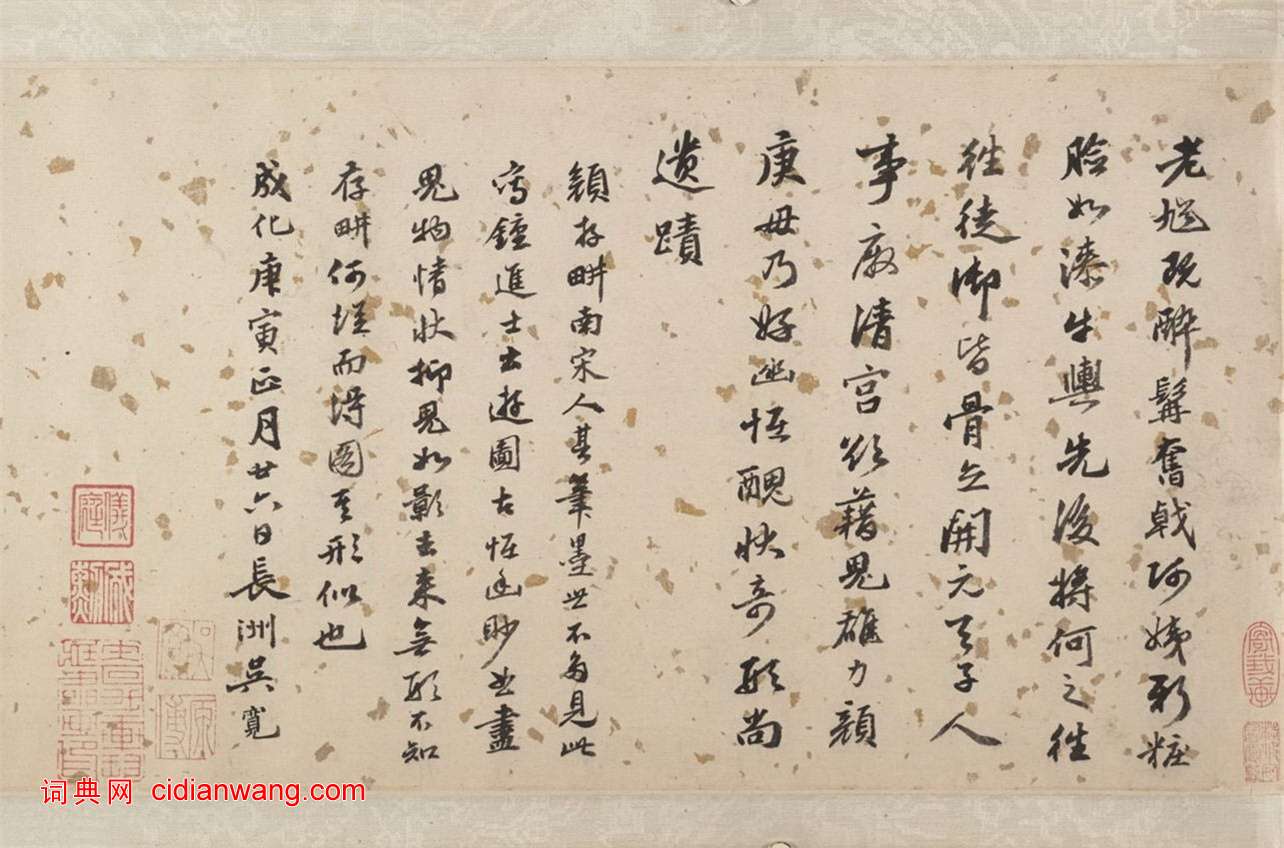 老馗既醉髯奮戟阿姨新粧
臉如漆牛輿先後將何之徃
徃徒御皆骨立開元天子人
事廢清宮欲藉鬼雄力顏
庚毋乃好幽怪醜狀奇形尚
遺蹟
顏存畊南宋人其筆墨世不多見此
寫鍾進士出遊圖古怪幽眇曲盡
鬼物情狀抑鬼如影去來無形不知
存畊何從而得圖其形似也
成化庚寅正月廿六日長洲吳寬
词典网 cidianwang.com